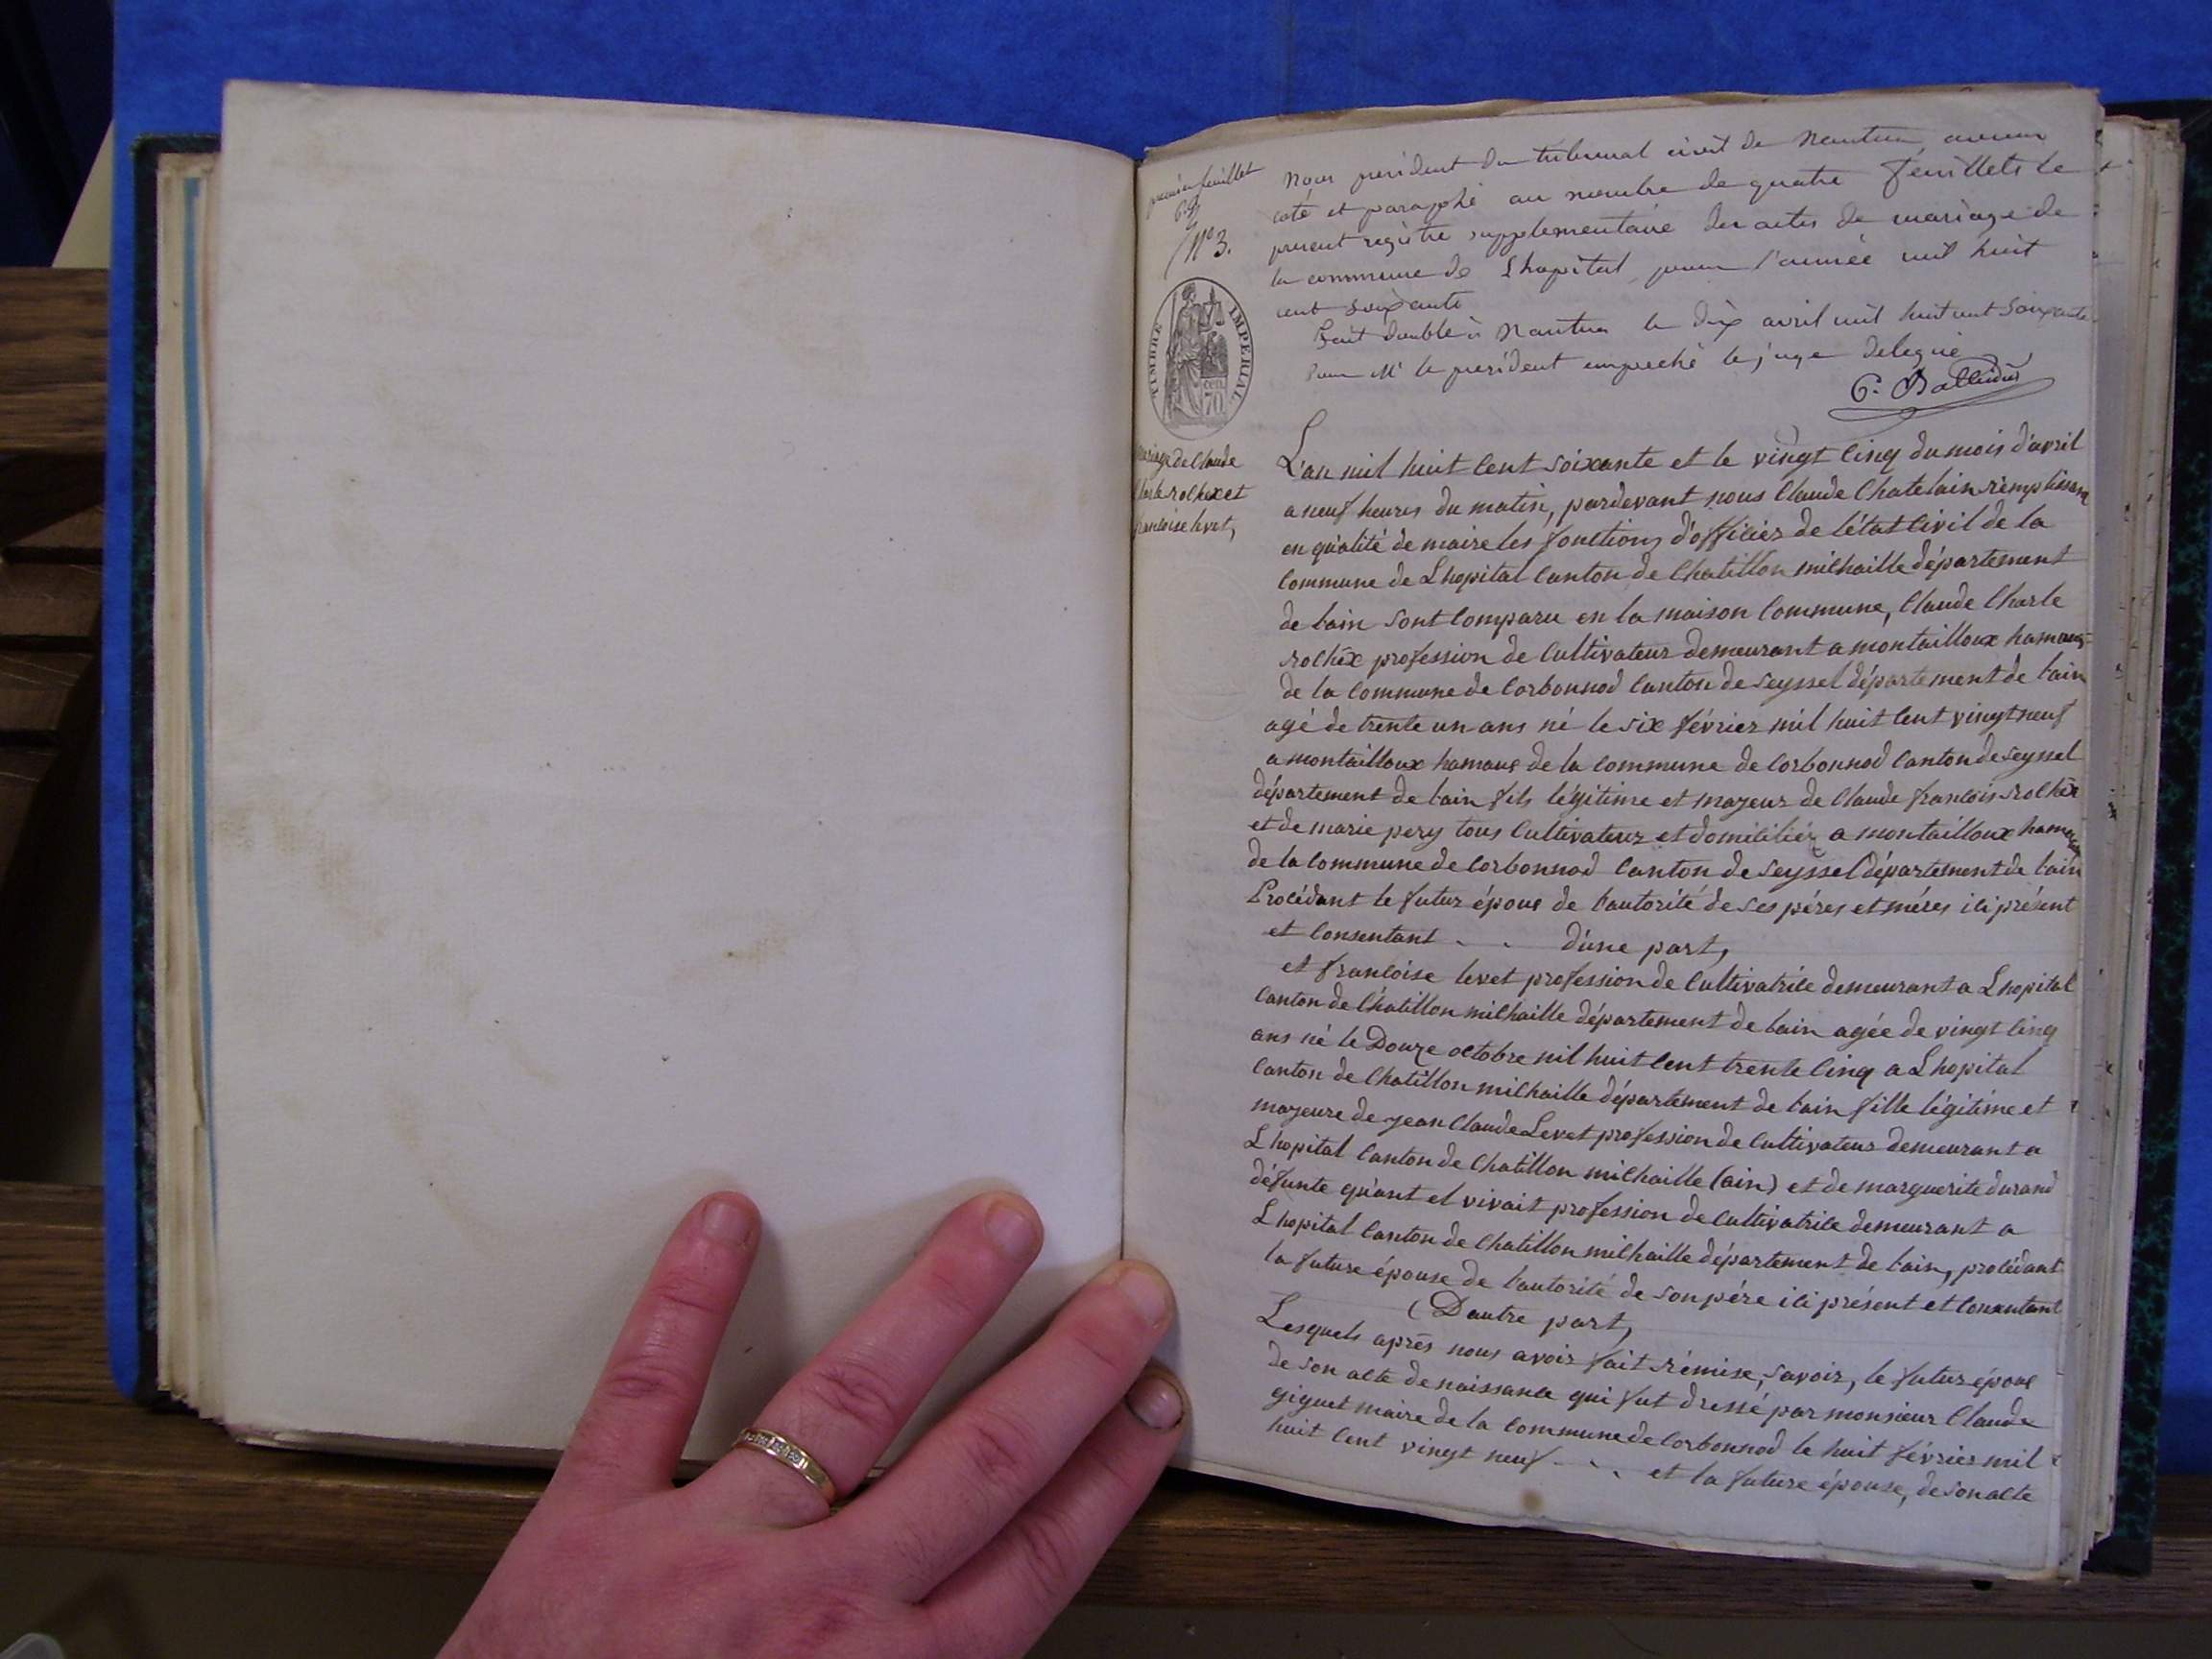 premier feuillet
N° 3.
TIMBRE IMPERIAL
cen
70
mariage de Claude
Charle rochex et
francoise levet,
Nous president du tribunal civil de Nantua, avons
coté et paraphé au nombre de quatre feuillets le
present registre supplementaire des actes de mariage de
la commune de Lhopital pour l'année mil huit
cent soixante
Fait double à Nantua le dix avril mil huit cent soixante
Pour Mr le president empeché le juge delegué
L'an mil huit cent soixante et le vingt cinq du mois d'avril
a neuf heures du matin, pardevant nous Claude Chatelain remplissan
en qu'alité de maire les fonctions d'officier de l'état civil de la
commune de Lhopital canton de Chatillon michaille département
de l'ain sont comparu en la maison commune, Claude Charle
rochex profession de cultivateur demeurant a montailloux hamaus
de la commune de corbonnod canton de seyssel département de l'ain
agé de trente un ans né le six février mil huit cent vingt neuf
a montailloux hamaus de la commune de corbonnod canton de seyssel
département de l'ain fils légitime et mayeur de Claude francois rochex
et de marie pery tous cultivateur et domiciliér a montailloux hamaus
de la commune de corbonnod canton de seyssel département de l'ain
Procédant le futur épous de l'autorité de ses péres et méres ici présent
et consentant - - d'une part,
et francoise levet profession de cultivatrice demeurant a Lhopital
canton de Chatillon michaille département de l'ain agée de vingt cinq
ans né le Douze octobre mil huit cent trente cinq a Lhopital
canton de Chatillon michaille département de l'ain fille légitime et
mayeure de jean Claude Levet profession de cultivateur demeurant a
Lhopital canton de Chatillon michaille (ain) et de marguerite durand
défunte qu'ant el vivait profession de cultivatrice demeurant a
Lhopital canton de Chatillon michaille département de l'ain, procédant
la future épouse de l'autorité de son pére ici présent et consentant
D'autre part,
Lesquels aprés nous avoir fait rémise, savoir, le futur épous
de son acte de naissance qui fut dressé par monsieur Claude
giguet maire de la commune de corbonnod le huit février mil
huit cent vingt neuf - - - et la future épouse, de son acte